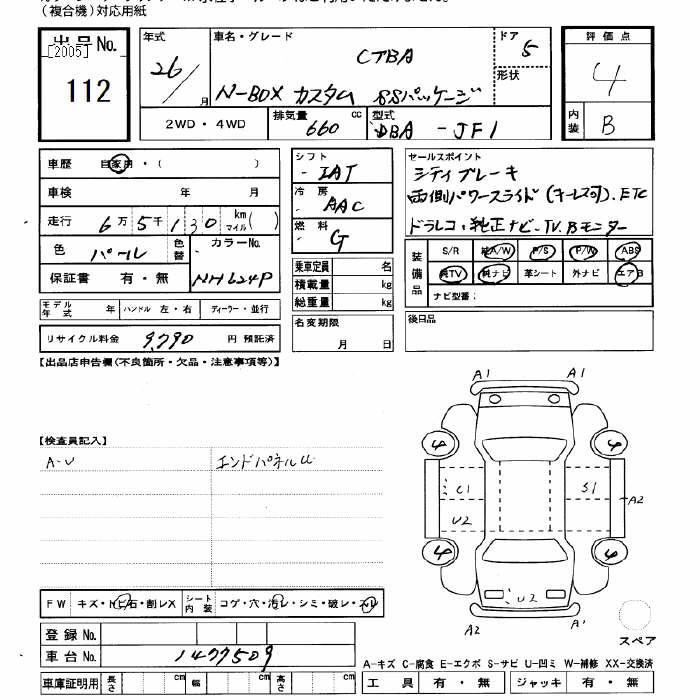 (複合機)対応用紙
出品No.
[2005]
112
年式
26/
月
車名・グレード
CTBA
N-BOX カスタム SSパッケージ
ドア
5
形状
評価点
4
内装
B
2WD・4WD
排気量
660
cc
型式
DBA - JF1
車歴 自家用・( )
車検 年 月
走行 6万5千130 km マイル( )
色 パール 色替
カラーNo.
NH624P
保証書 有・無
モデル年式 年 ハンドル 左・右 ディーラー・並行
リサイクル料金 9,790 円 預託済
シフト
IAT
冷房
AAC
燃料
G
乗車定員 名
積載量 kg
総重量 kg
名変期限
月 日
セールスポイント
シティブレーキ
両側パワースライド(キーレス可)、ETC
ドラレコ・純正ナビ・TV、Bモニター
装備品
S/R 純A/W P/S P/W ABS
純TV 純ナビ 革シート 外ナビ エアB
ナビ型番:
後日品
【出品店申告欄(不良箇所・欠品・注意事項等)】
【検査員記入】
A-U
エンドパネルU
A1 A1
4 4
C1 S1
A2
U2
4 4
U2
A2 A1
スペア
FW キズ・トビ石・割レX
シート内装 コゲ・穴・汚レ・シミ・破レ・スレ
登録No.
車台No. 1477509
車庫証明用 長さ cm 幅 cm 高さ cm
A-キズ C-腐食 E-エクボ S-サビ U-凹ミ W-補修 XX-交換済
工具 有・無 ジャッキ 有・無